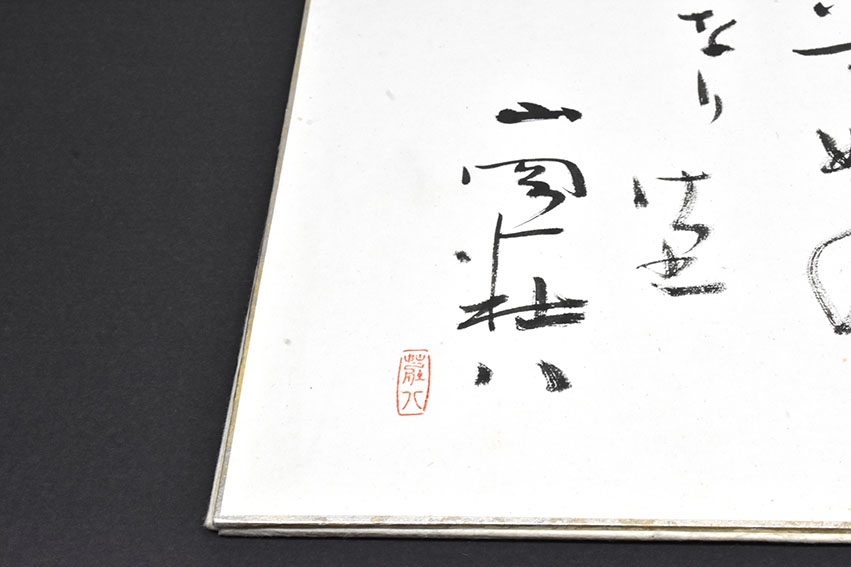 めの
なり
山岡荘八
荘八